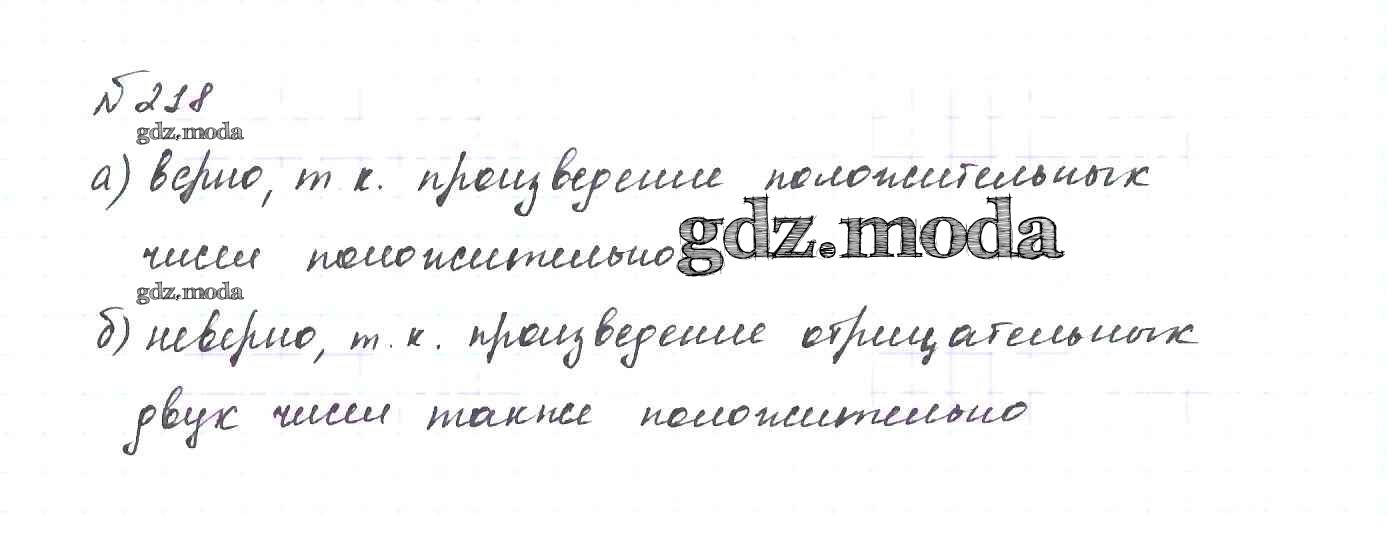 № 218
gdz.moda
а) верно, т к. произведение положительных
чисел положительно
gdz.moda
gdz.moda
б) неверно, т. к. произведение отрицательных
двух чисел также положительно